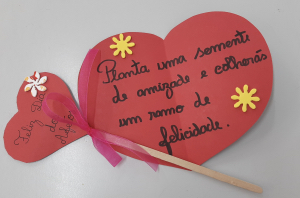 Planta uma semente
de amizade e colherás
um ramo de
felicidade.
Feliz